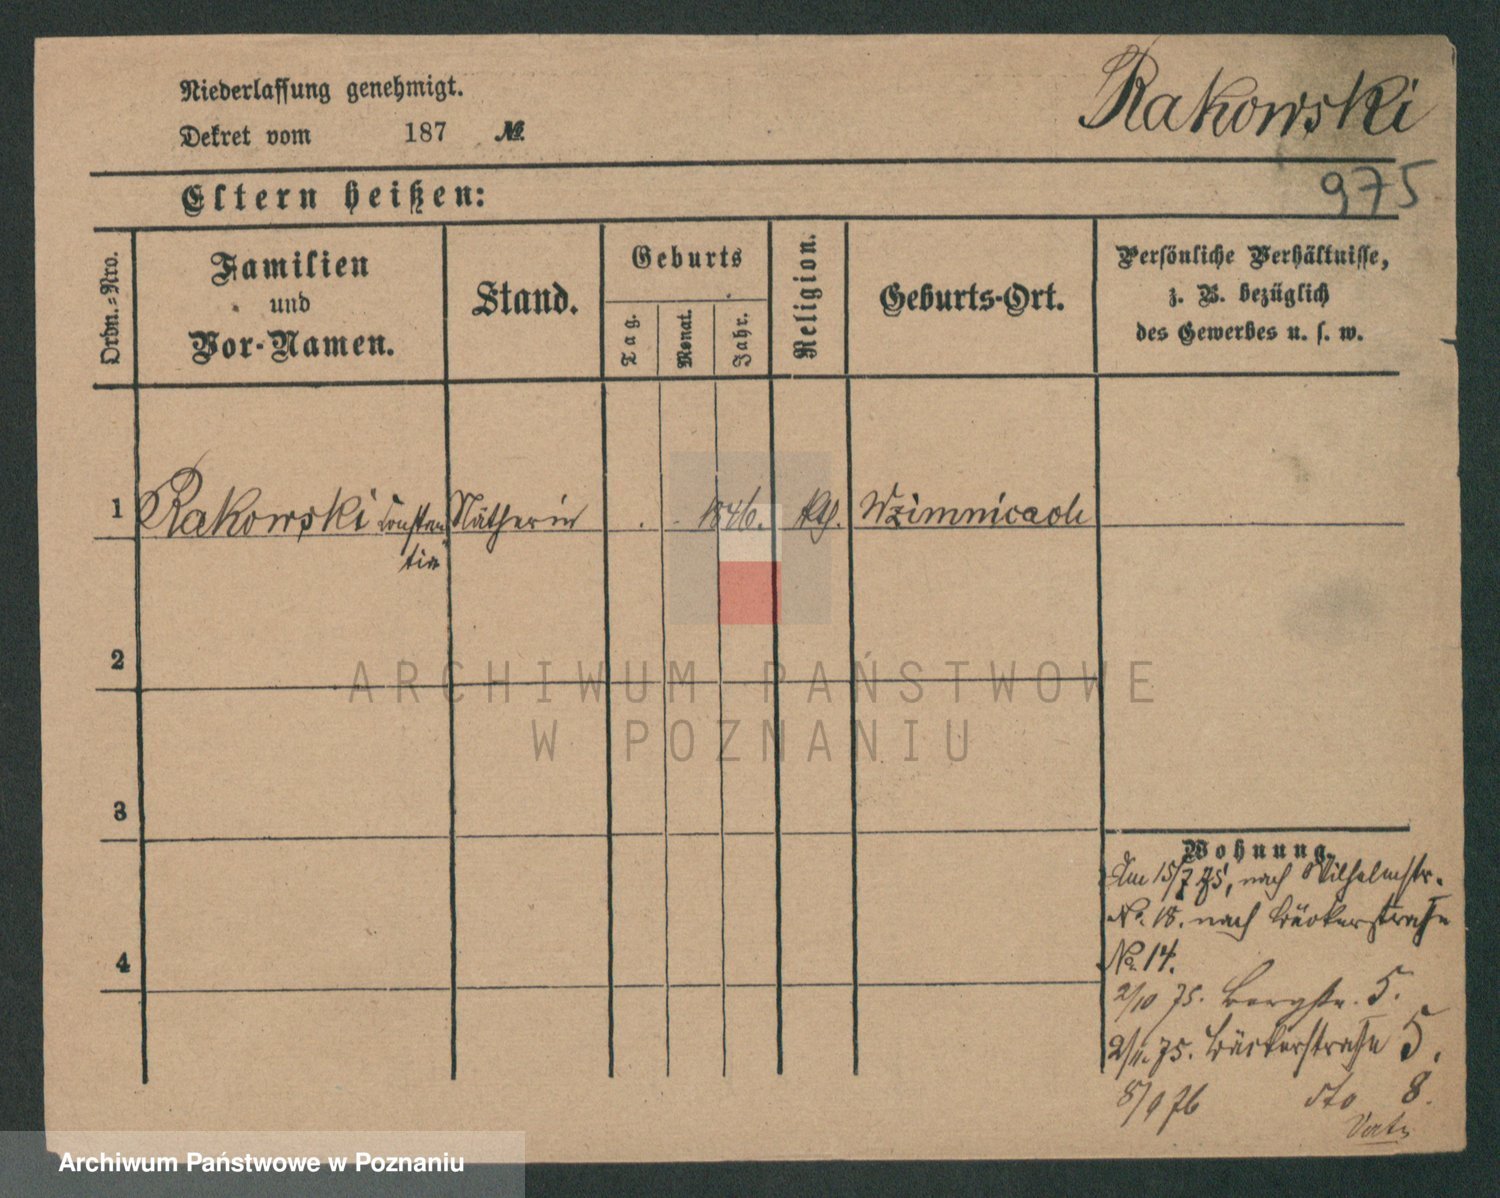 Niederlassung genehmigt.
Dekret vom 187 №
Rakowski
975
Eltern heißen:
Ordn.=Nro.
Familien
und
Vor-Namen.
Stand.
Geburts
Tag.
Monat.
Jahr.
Religion.
Geburts-Ort.
Persönliche Verhältnisse,
z. B. bezüglich
des Gewerbes u. s. w.
1 Rakowski Constan Nätherin 1846. kth.
tia
2
3
4
Wohnung.
Am 15/7 75, nach Wilhelmstr.
No. 18. nach Bäckerstraße
No. 14.
2/10 75. Bergstr. 5.
2/11. 75. Bäckerstraße 5.
8/9 76 dto 8.
ARCHIWUM PAŃSTWOWE
W POZNANIU
Archiwum Państwowe w Poznaniu